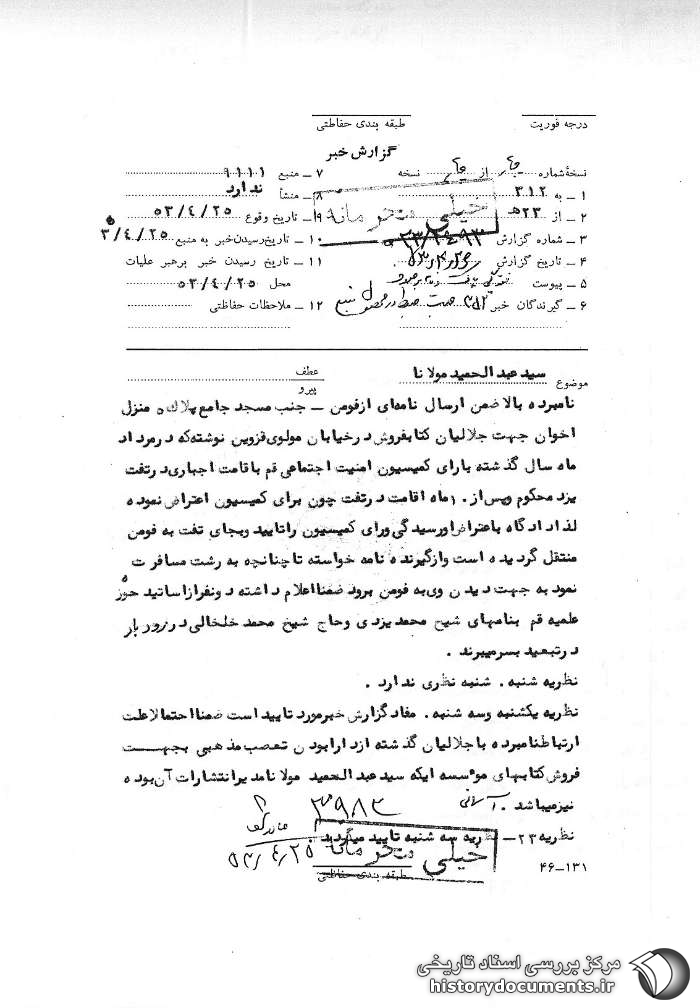 درجه فوریت
طبقه بندی حفاظتی
گزارش خبر
نسخهٔ شماره چهار از چهار نسخه
۱ ـ به ۳۱۲
۲ ـ از ۲۳هـ
۳ ـ شماره گزارش
۴ ـ تاریخ گزارش
۵ ـ پیوست
۶ ـ گیرندگان خبر
۷ ـ منبع ۹۱۱۱
۸ ـ منشأ ندارد
۹ ـ تاریخ وقوع ۵۳/۴/۲۵
۱۰ ـ تاریخ رسیدن خبر به منبع ۵۳/۴/۲۵
۱۱ ـ تاریخ رسیدن خبر برهبر عملیات
محل ۵۳/۴/۲۵
۱۲ ـ ملاحظات حفاظتی
خیلی محرمانه
موضوع سید عبدالحمید مولانا
عطف
پیرو
نامبرده بالا ضمن ارسال نامه‌ای از فومن ـ جنب مسجد جامع پلاک ۵ منزل
اخوان جهت جلالیان کتابفروش در خیابان مولوی قزوین نوشته که در مرداد
ماه سال گذشته بارای کمیسیون امنیت اجتماعی قم باقامت اجباری در تفت
یزد محکوم و پس از ۱۰ ماه اقامت در تفت چون برای کمیسیون اعتراض نموده
لذا دادگاه باعتراض او رسیدگی و رای کمیسیون را تایید و بجای تفت به فومن
منتقل گردیده است و از گیرنده نامه خواسته تا چنانچه به رشت مسافرت
نمود به جهت دیدن وی به فومن برود ضمنا اعلام داشته دو نفر از اساتید حوزه
علمیه قم بنامهای شیخ محمد یزدی و حاج شیخ محمد خلخالی در رودبار
در تبعید بسر میبرند .
نظریه شنبه . شنبه نظری ندارد .
نظریه یکشنبه و سه شنبه . مفاد گزارش خبر مورد تایید است ضمنا احتمالا علت
ارتباط نامبرده با جلالیان گذشته از دارا بودن تعصب مذهبی بجهت
فروش کتابهای موسسه ایکه سید عبدالحمید مولانا مدیر انتشارات آن بوده
نیز میباشد . آسانی
۳۹۸۳
نظریه ۲۳ـ نظریه سه شنبه تایید میگردد
۵۳/۴/۲۵
خیلی محرمانه
طبقه بندی حفاظتی
۴۶-۱۳۱
مرکز بررسی اسناد تاریخی
historydocuments.ir